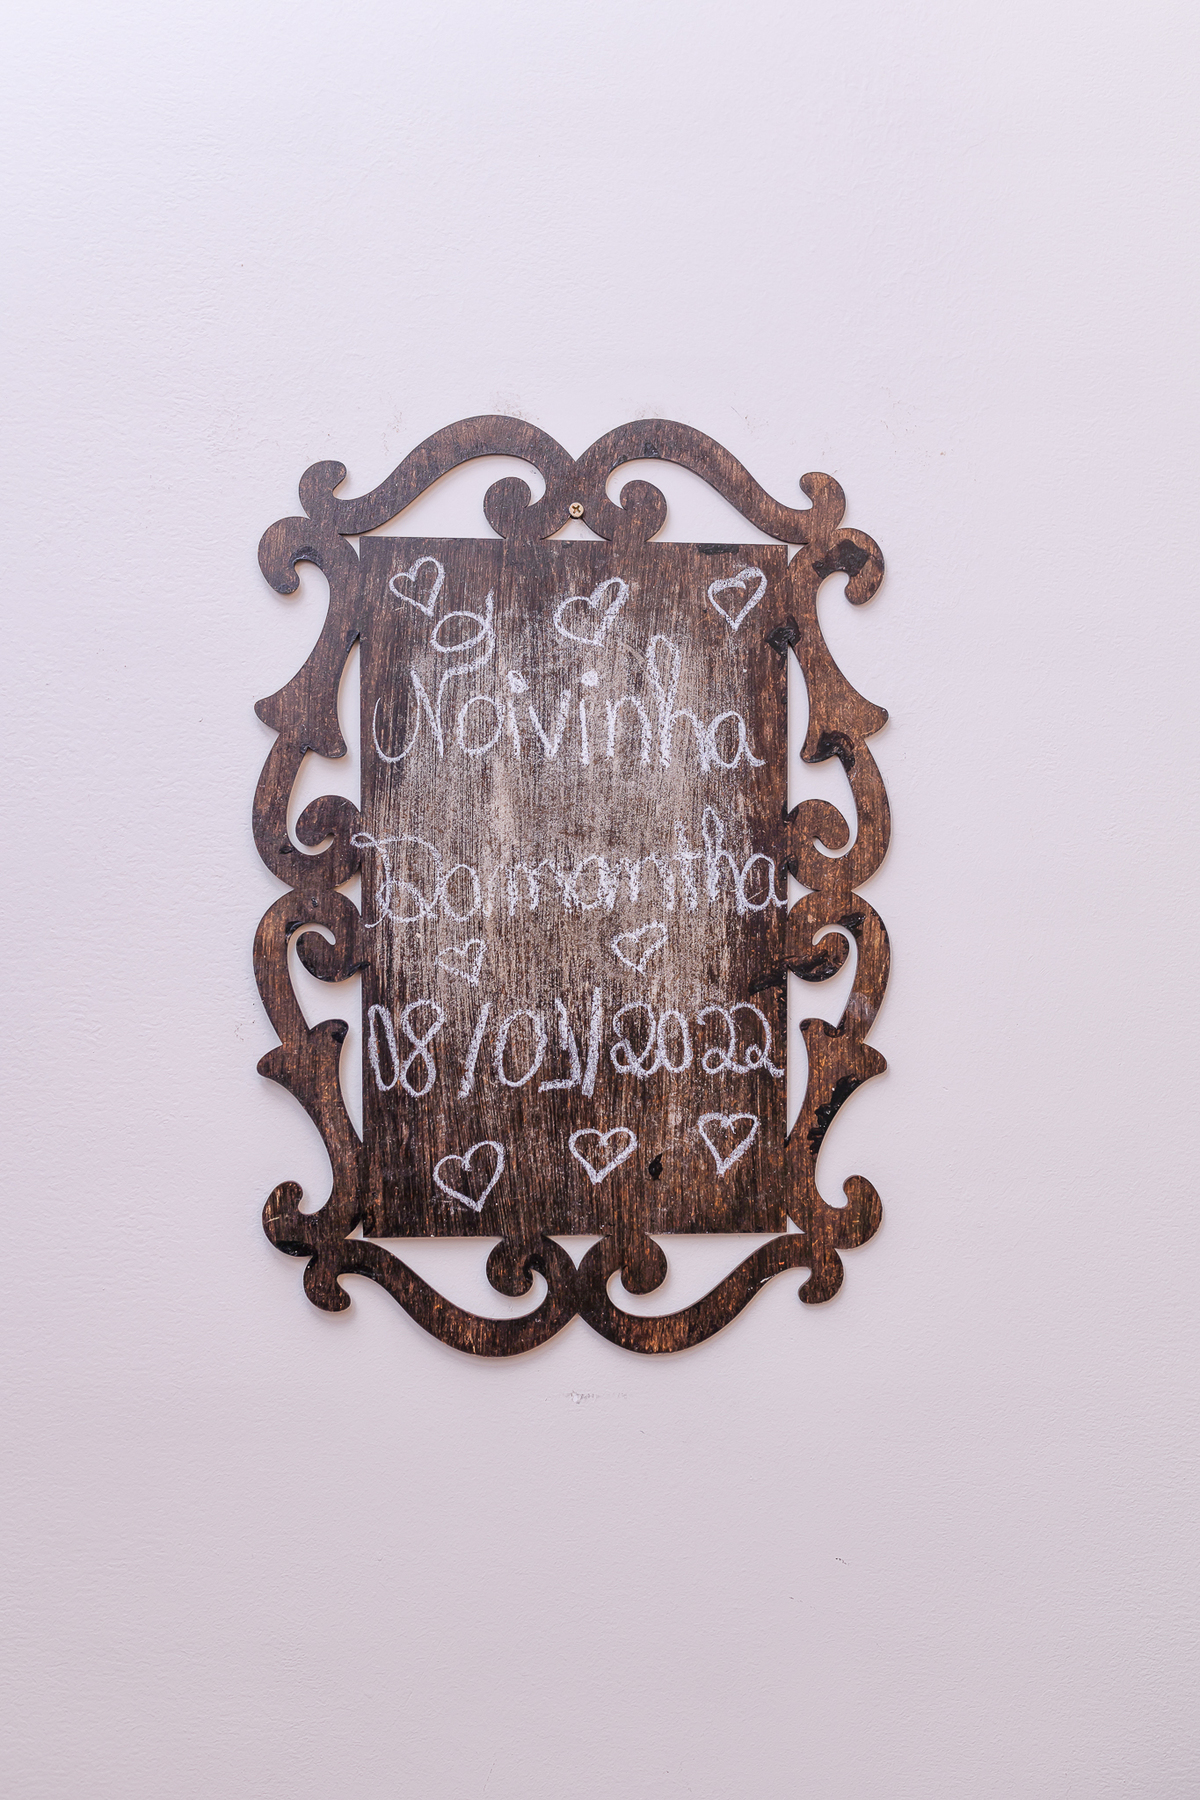 Noivinha
Samantha
08/01/2022